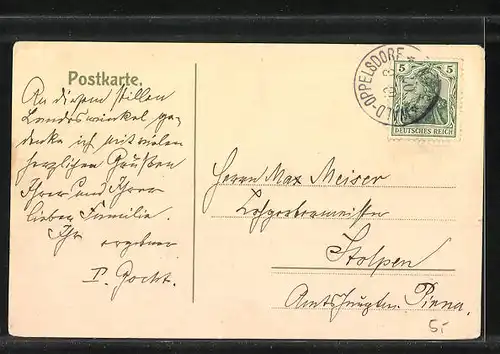 Postkarte.
An diesem stillen
Landeswinkel ge-
denke ich mit vielen
herzlichen Grüßen
Ihrer und Ihrer
lieber Familie.
Ihr ergebener
Herrn Max Meiser
Lohgerbermeister
Stolpen
Amtshauptm. Pirna.
LD-OPPELSDORF
5 5
DEUTSCHES REICH
5.-